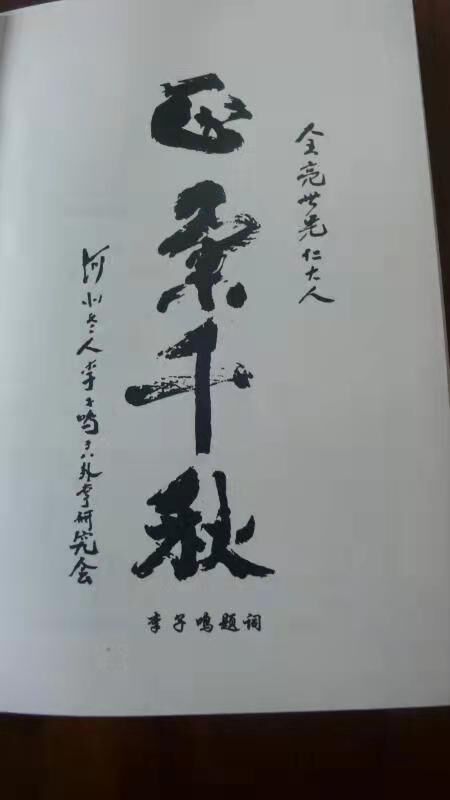 全亮世兄仁大人
千秋
河北人李子鸣于八卦掌研究会
李子鸣题词